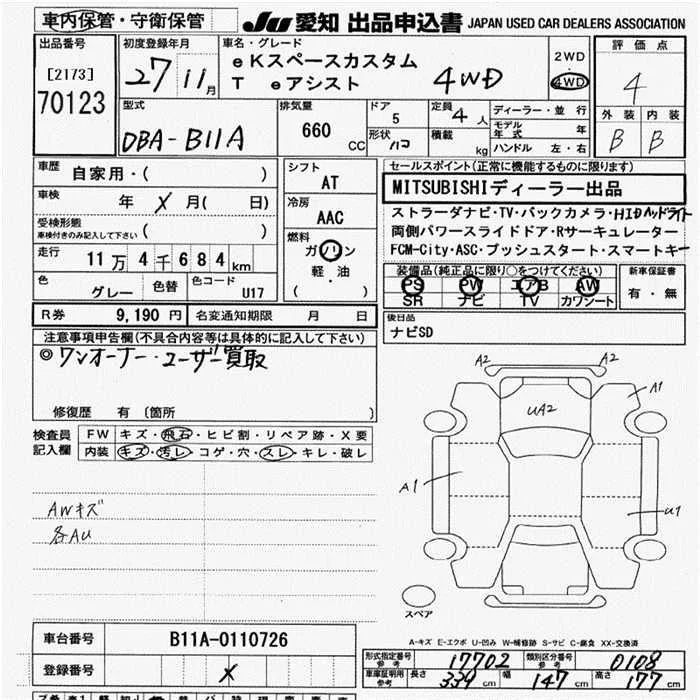 車内保管・守衛保管
JU 愛知 出品申込書 JAPAN USED CAR DEALERS ASSOCIATION
出品番号
[2173]
70123
初度登録年月
27 11月
車名・グレード
eKスペースカスタム
T eアシスト 4WD
2WD
4WD
評価点
4
外装 内装
B B
型式
DBA-B11A
排気量
660 CC
ドア
5
形状
ハコ
定員
4人
積載
kg
ディーラー・並行
モデル年式 年
ハンドル 左・右
車歴
自家用・( )
車検
年 X 月( 日)
受検形態
車検付きのみ記入して下さい ( )
走行
11万4千684km
色
グレー
色替
色コード
U17
シフト
AT
冷房
AAC
燃料
ガソリン
軽・油
( )
セールスポイント(正常に機能するものに限ります)
MITSUBISHIディーラー出品
ストラーダナビ・TV・バックカメラ・HIDヘッドライト
両側パワースライドドア・Rサーキュレーター
FCM-City・ASC・プッシュスタート・スマートキー
装備品(純正品に限り○をつけてください)
PS PW エアB AW
SR ナビ TV カワシート
新車保証書
有・無
R券 9,190円 名変通知期限 月 日
後日品
ナビSD
注意事項申告欄(不具合内容等は具体的に記入して下さい)
◎ワンオーナー・ユーザー買取
修復歴 有 〔箇所 〕
検査員
記入欄
FW キズ・飛石・ヒビ割・リペア跡・X要
内装 キズ・汚レ・コゲ・穴・スレ・キレ・破レ
AWキズ
各AU
A2 A2
UA2
A1
A1
U1
スペア
A-キズ E-エクボ U-凹み W-補修跡 S-サビ C-腐食 XX-交換済
車台番号 B11A-0110726
登録番号 X
形式指定番号 参考 17702 類別区分番号 参考 0108
車庫証明用 参考 長さ 339cm 幅 147cm 高さ 177cm